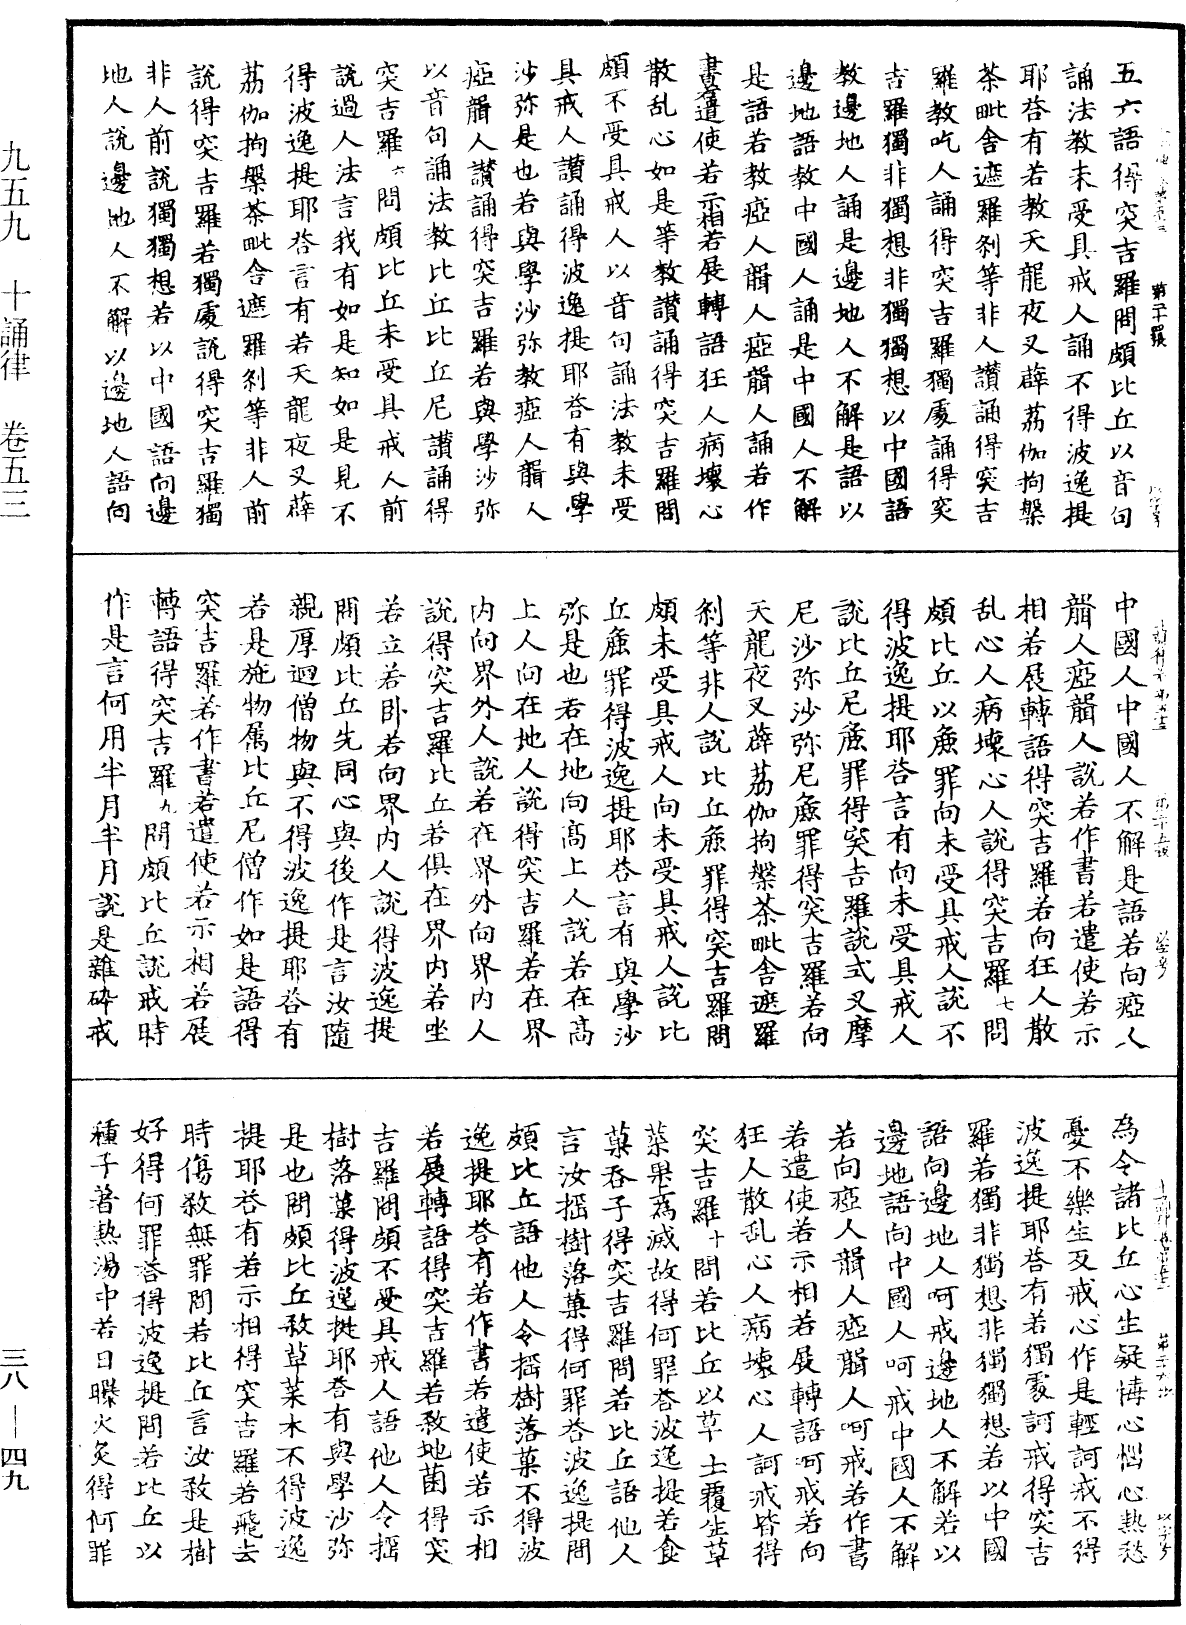 五六語得突吉羅問頗比丘以音句
誦法教未受具戒人誦不得波逸提
耶荅有若教天龍夜叉薜荔伽拘槃
茶毗舍遮羅剎等非人讃誦得突吉
羅教吃人誦得突吉羅獨處誦得突
吉羅獨非獨想非獨獨想以中國語
教邊地人誦是邊地人不解是語以
邊地語教中國人誦是中國人不解
是語若教瘂人聾人瘂聾人誦若作
書若遣使若示相若展轉語狂人病壞心
散乱心如是等教讃誦得突吉羅問
頗不受具戒人以音句誦法教未受
具戒人讃誦得波逸提耶荅有與學
沙弥是也若與學沙弥教瘂人聾人
瘂聾人讃誦得突吉羅若與學沙弥
以音句誦法教比丘比丘尼讃誦得
突吉羅六問頗比丘未受具戒人前
說過人法言我有如是知如是見不
得波逸提耶荅言有若天龍夜叉薜
荔伽拘槃茶毗舍遮羅剎等非人前
說得突吉羅若獨處說得突吉羅獨
非人前說獨獨想若以中國語向邊
地人說邊地人不解以邊地人語向
中國人中國人不解是語若向瘂人
聾人瘂聾人說若作書若遣使若示
相若展轉語得突吉羅若向狂人散
乱心人病壞心人說得突吉羅七問
頗比丘以麁罪向未受具戒人說不
得波逸提耶荅言有向未受具戒人
說比丘尼麁罪得突吉羅說式叉摩
尼沙弥沙弥尼麁罪得突吉羅若向
天龍夜叉薜荔伽拘槃茶毗舍遮羅
剎等非人說比丘麁罪得突吉羅問
頗未受具戒人向未受具戒人說比
丘麁罪得波逸提耶荅言有與學沙
弥是也若在地向高上人說若在高
上人向在地人說得突吉羅若在界
內向界外人說若在界外向界內人
說得突吉羅比丘若俱在界內若坐
若立若卧若向界內人說得波逸提
問頗比丘先同心與後作是言汝隨
親厚迴僧物與不得波逸提耶荅有
若是施物属比丘尼僧作如是語得
突吉羅若作書若遣使若示相若展
轉語得突吉羅九問頗比丘說戒時
作是言何用半月半月說是雜碎戒
為令諸比丘心生疑悔心惱心熱愁
憂不樂生反戒心作是輕訶戒不得
波逸提耶荅有若獨處訶戒得突吉
羅若獨非獨想非獨獨想若以中國
語向邊地人呵戒邊地人不解若以
邊地語向中國人呵戒中國人不解
若向瘂人聾人瘂聾人呵戒若作書
若遣使若示相若展轉語呵戒若向
狂人散乱心人病壞心人訶戒皆得
突吉羅十問若比丘以草土覆生草
菜果為滅故得何罪荅波逸提若食
菓吞子得突吉羅問若比丘語他人
言汝搖樹落菓得何罪荅波逸提問
頗比丘語他人令搖樹落菓不得波
逸提耶荅有若作書若遣使若示相
若展轉語得突吉羅若敎地菌得突
吉羅問頗不受具戒人語他人令搖
樹落菓得波逸提耶荅有與學沙弥
是也問頗比丘敎草菜木不得波逸
提耶荅有若示相得突吉羅若飛去
時傷敎無罪問若比丘言汝敎是樹
好得何罪荅得波逸提問若比丘以
種子著熱湯中若日曝火炙得何罪
九五九　十誦律　卷五三
三八—四九